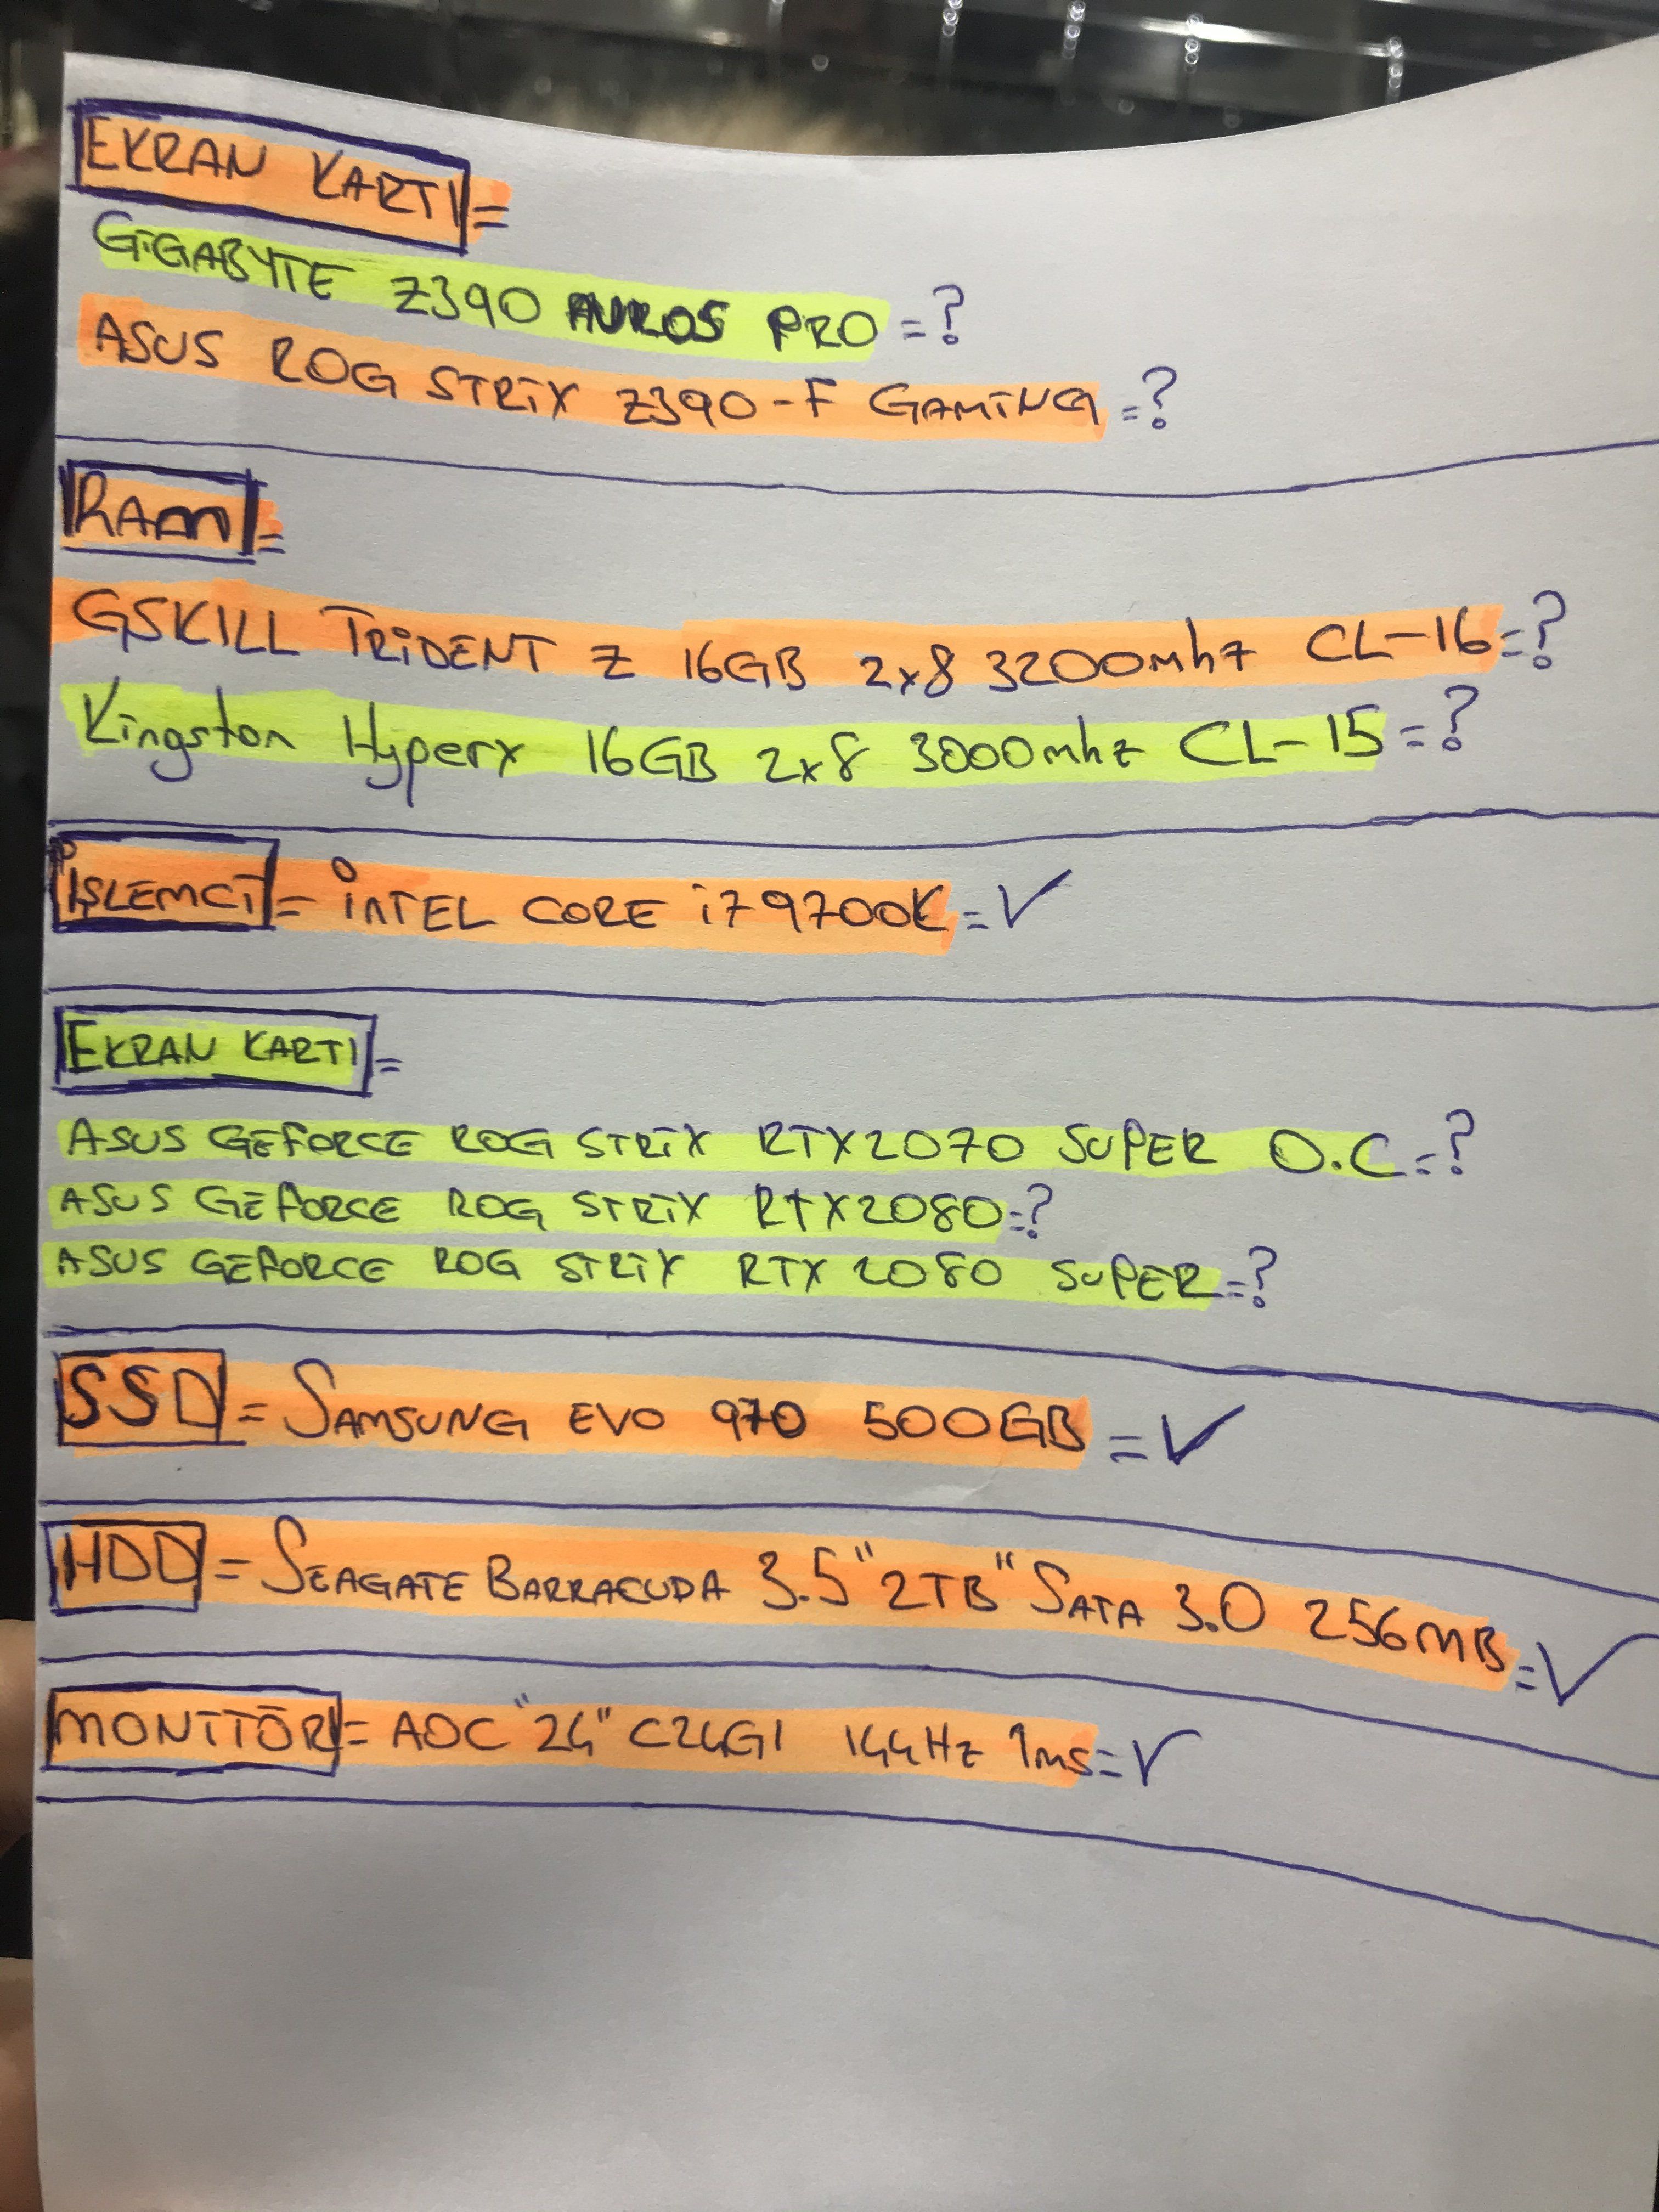 EKRAN KARTI=
GİGABYTE Z390 AUROS PRO=?
ASUS ROG STRİX Z390-F GAMİNG=?
RAM=
GSKILL TRİDENT Z 16GB 2x8 3200mhz CL-16=?
Kingston Hyperx 16GB 2x8 3000mhz CL-15=?
İŞLEMCİ= İNTEL CORE i7 9700K=✓
EKRAN KARTI=
ASUS GEFORCE ROG STRİX RTX2070 SUPER O.C=?
ASUS GEFORCE ROG STRİX RTX2080=?
ASUS GEFORCE ROG STRİX RTX 2080 SUPER=?
SSD= SAMSUNG EVO 970 500GB=✓
HDD= SEAGATE BARRACUDA 3.5"2TB" SATA 3.0 256MB=✓
MONİTÖR= AOC "24" C24G1 144Hz 1ms=✓